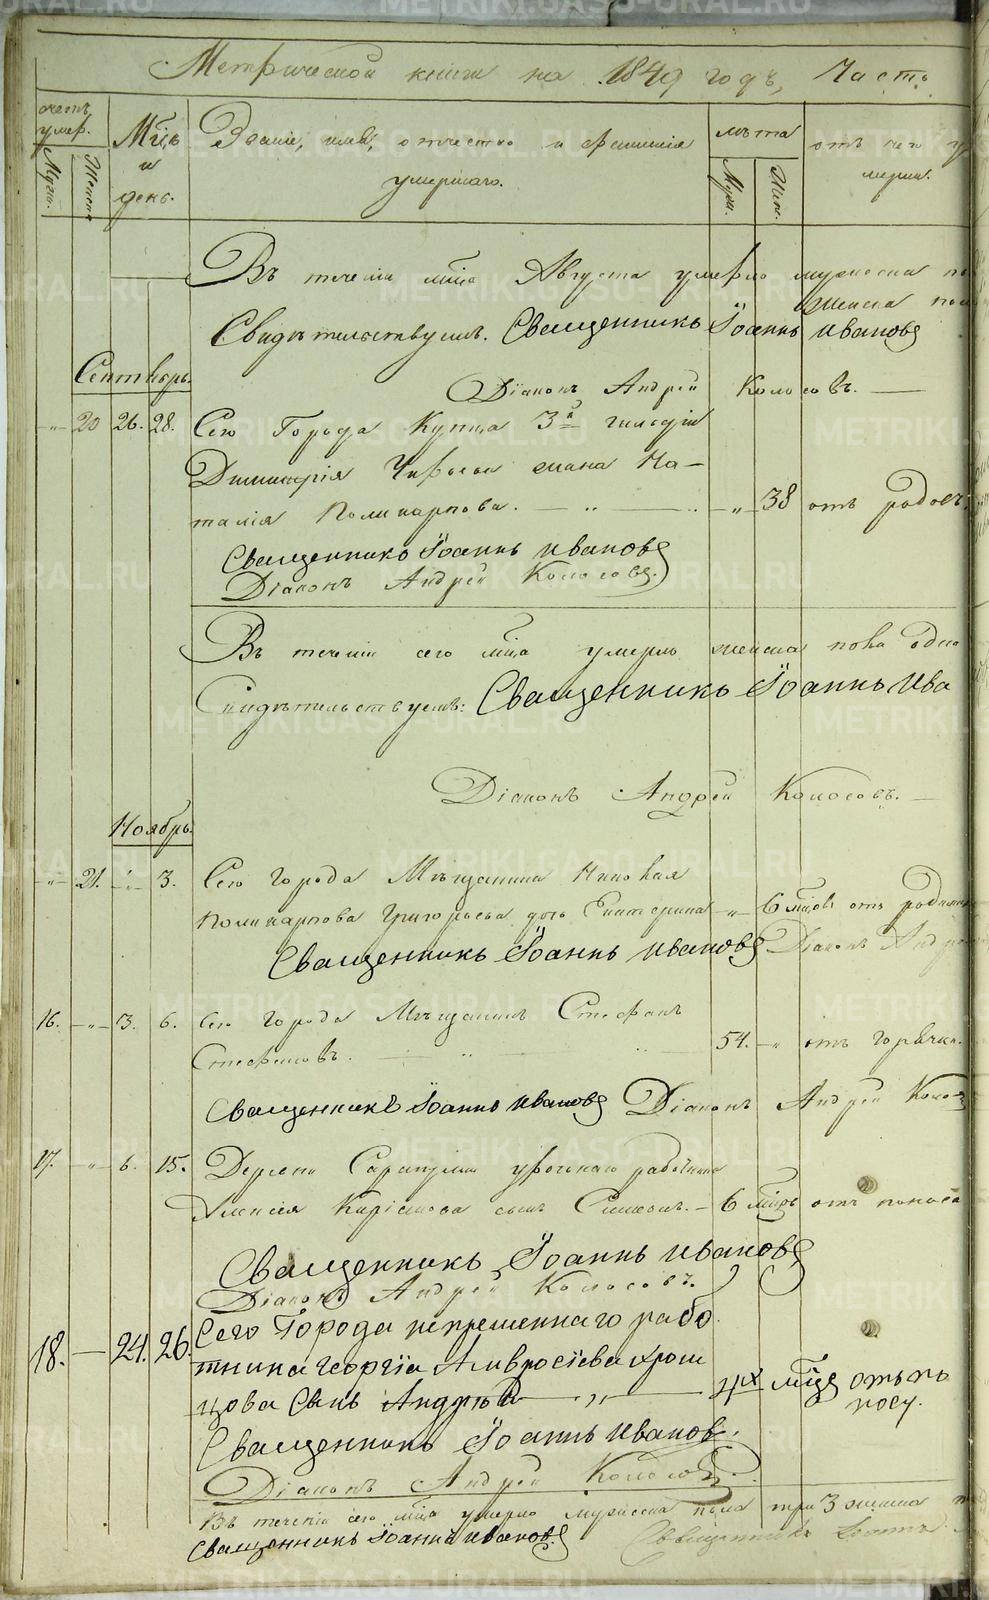 Метрической книги на 1849 годъ, Часть
счетъ умер.
Муж.
Женск.
Мѣць и день.
Званіе, имя, отчество и фамилія умершаго.
лѣта
Муж.
Жен.
отъ чего у
мерли.
Въ теченіи мѣца Августа умерло мужеска по
женска пола
Свидѣтельствуемъ. Священникъ Іоаннъ Ивановъ
Сентябрь.
Діаконъ Андрей Колосовъ.
20 26. 28. Сего Города Купца 3й гильдіи
Димитрія жена На-
талія Поликарпова. 38 отъ родовъ.
Священникъ Іоаннъ Ивановъ
Діаконъ Андрей Колосовъ.
Въ теченіи сего мѣца умерло женска пола одно
Свидѣтельствуемъ: Священникъ Іоаннъ Ива
Діаконъ Андрей Колосовъ.
Ноябрь.
21. 3. Сего Города Мѣщанина
Поликарпова Григорьева дочь Екатерина 6 мѣцовъ отъ
Священникъ Іоаннъ Ивановъ Діаконъ Андрей
16. 3. 6. Сего Города Мѣщанинъ Стефанъ
Стефановъ. 54. отъ горячки.
Священникъ Іоаннъ Ивановъ Діаконъ Андрей Коло
17. 6. 15. Деревни урочнаго работника
Алексея сынъ Симеонъ. 6 мѣцъ отъ поноса
Священникъ Іоаннъ Ивановъ
Діаконъ Андрей Колосовъ.
18. 24. 26. Сего Города непременнаго рабо
тника Георгіа Амвросіева Хром
цова Сынъ Андрей 4х мѣце отъ по
носу.
Священникъ Іоаннъ Иванов.
Діаконъ Андрей Колосовъ.
Въ теченіи сего мѣца умерло мужеска пола три 3 женска
Священникъ Іоаннъ Ивановъ. Священникъ Іоаннъ
METRIKI.GASO-URAL.RU